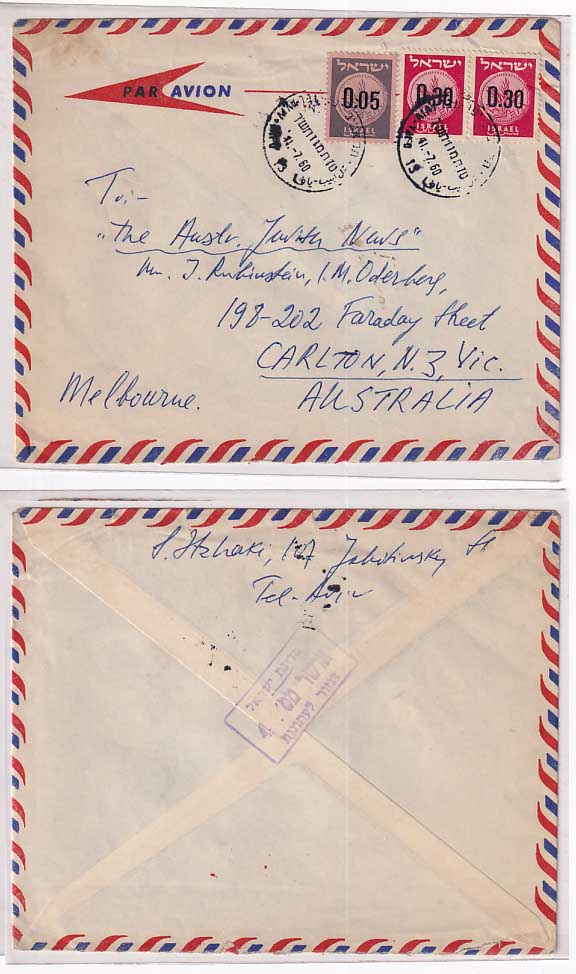 PAR AVION
ישראל
0.05
ISRAEL
ישראל
0.30
ISRAEL
ישראל
0.30
ISRAEL
-7.60
-7.60
To:-
"The Austr. Jewish News"
J. Rubinstein, I.M. Oderberg,
198-202 Faraday Street
CARLTON, N.3, Vic.
Melbourne.
AUSTRALIA
S. Itzhaki, 127 Jabotinsky St
Tel-Aviv